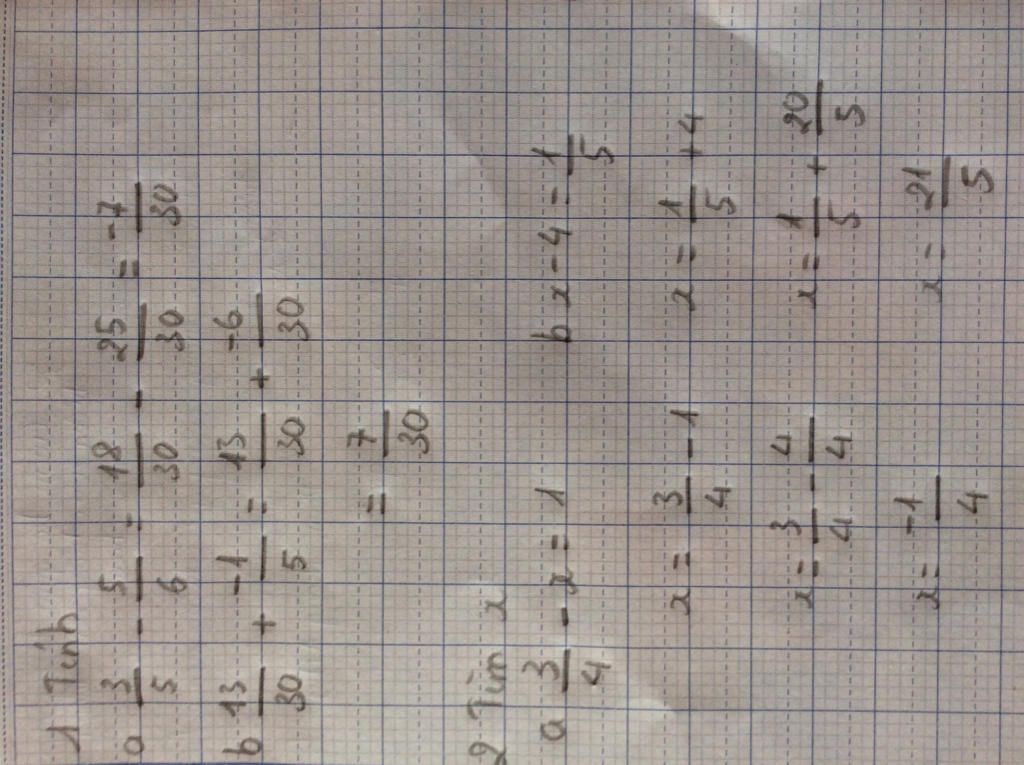 1 Tính
a 3/5 - 5/6 = 18/30 - 25/30 = -7/30
b 13/30 + -1/5 = 13/30 + -6/30
= 7/30
2 Tìm x
a 3/4 - x = 1
x = 3/4 - 1
x = 3/4 - 4/4
x = -1/4
b x - 4 = 1/5
x = 1/5 + 4
x = 1/5 + 20/5
x = 21/5